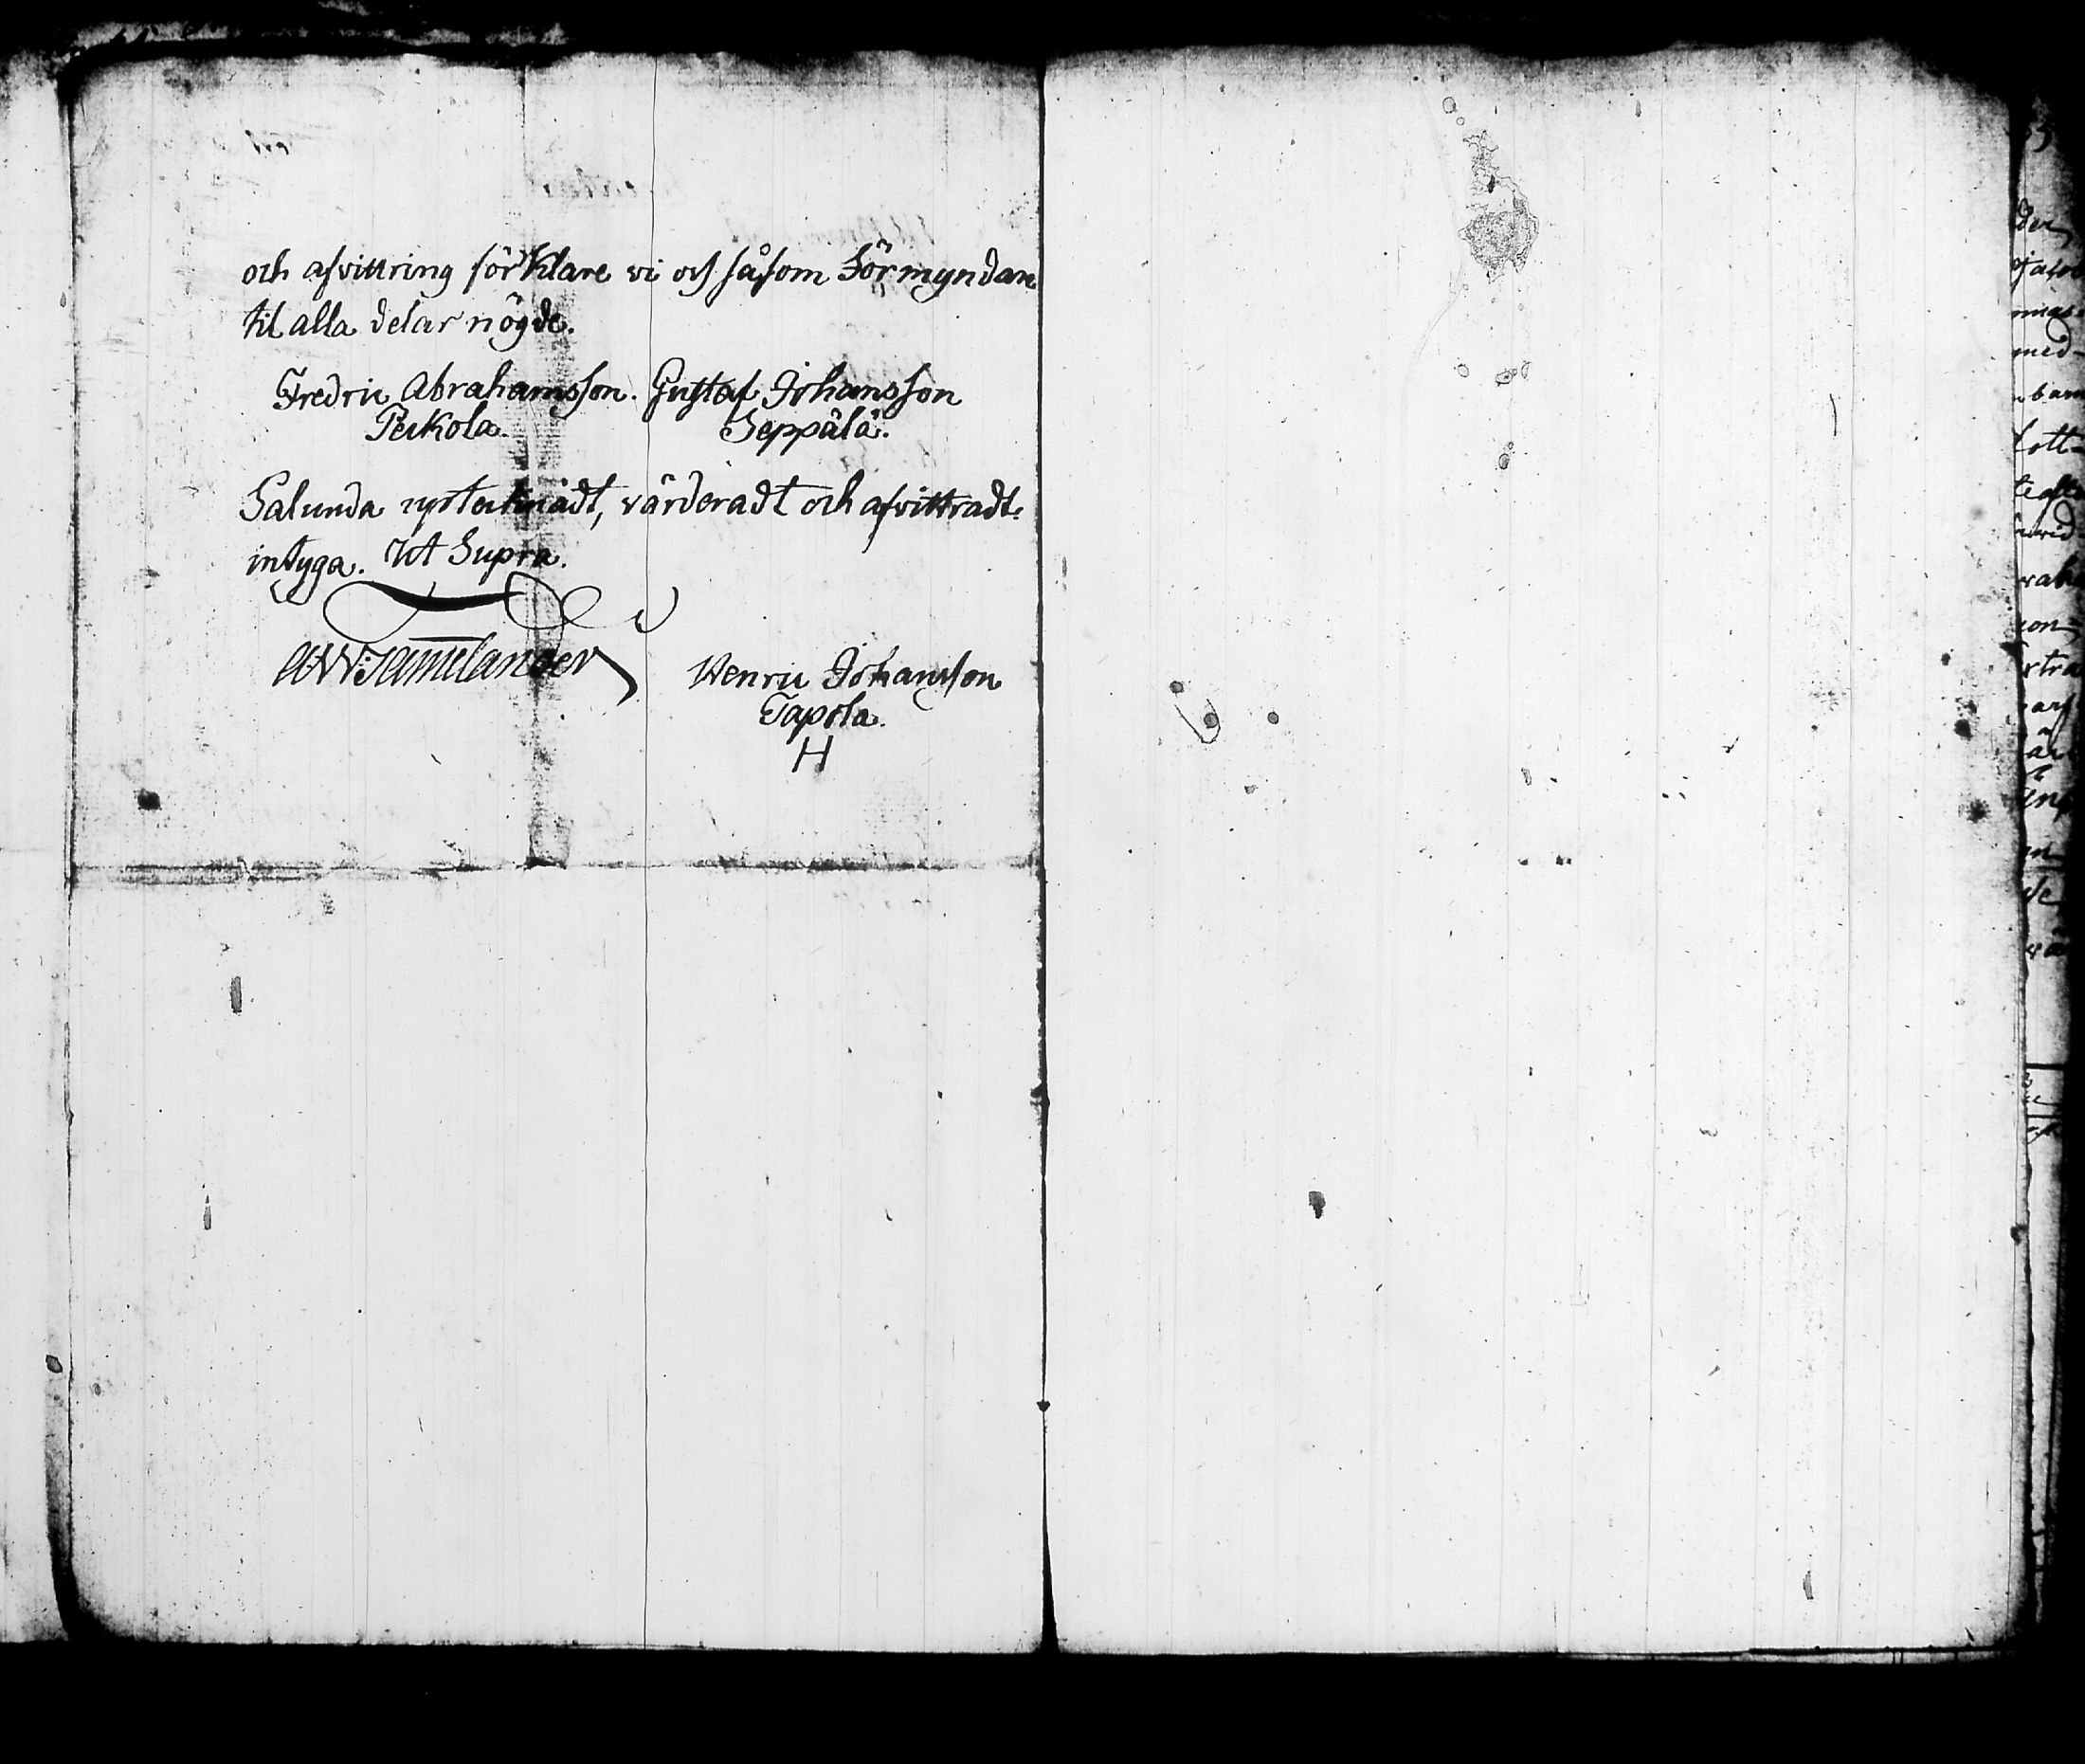 och afvittring förklare vi oss såsom Förmyndare
til alla delar nögde.
Fredric Abrahamsson. Gustaf Johansson
Peikola. Seppälä.
Salunda uptecknadt, värderadt och afvittradt.
intyga. Ut Supra.
Henric Johansson
Tapola.
H